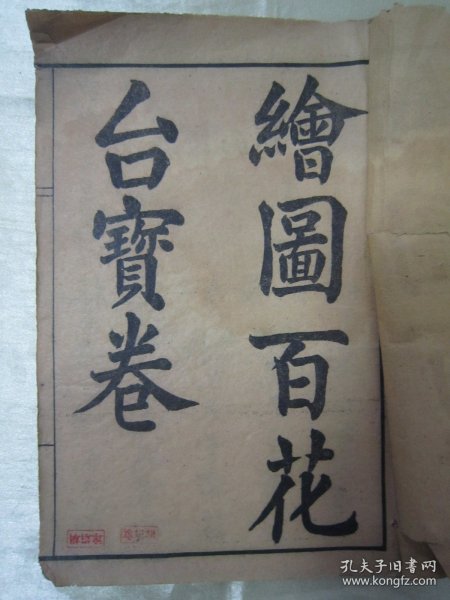 繪圖百花
台寶卷
孔夫子旧書网
www.kongfz.com